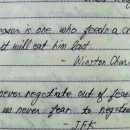 easer is one who feeds a cr
it will eat him last.
- Winston Chur
never negotiate out of fear
us never fear to negoti
JFK